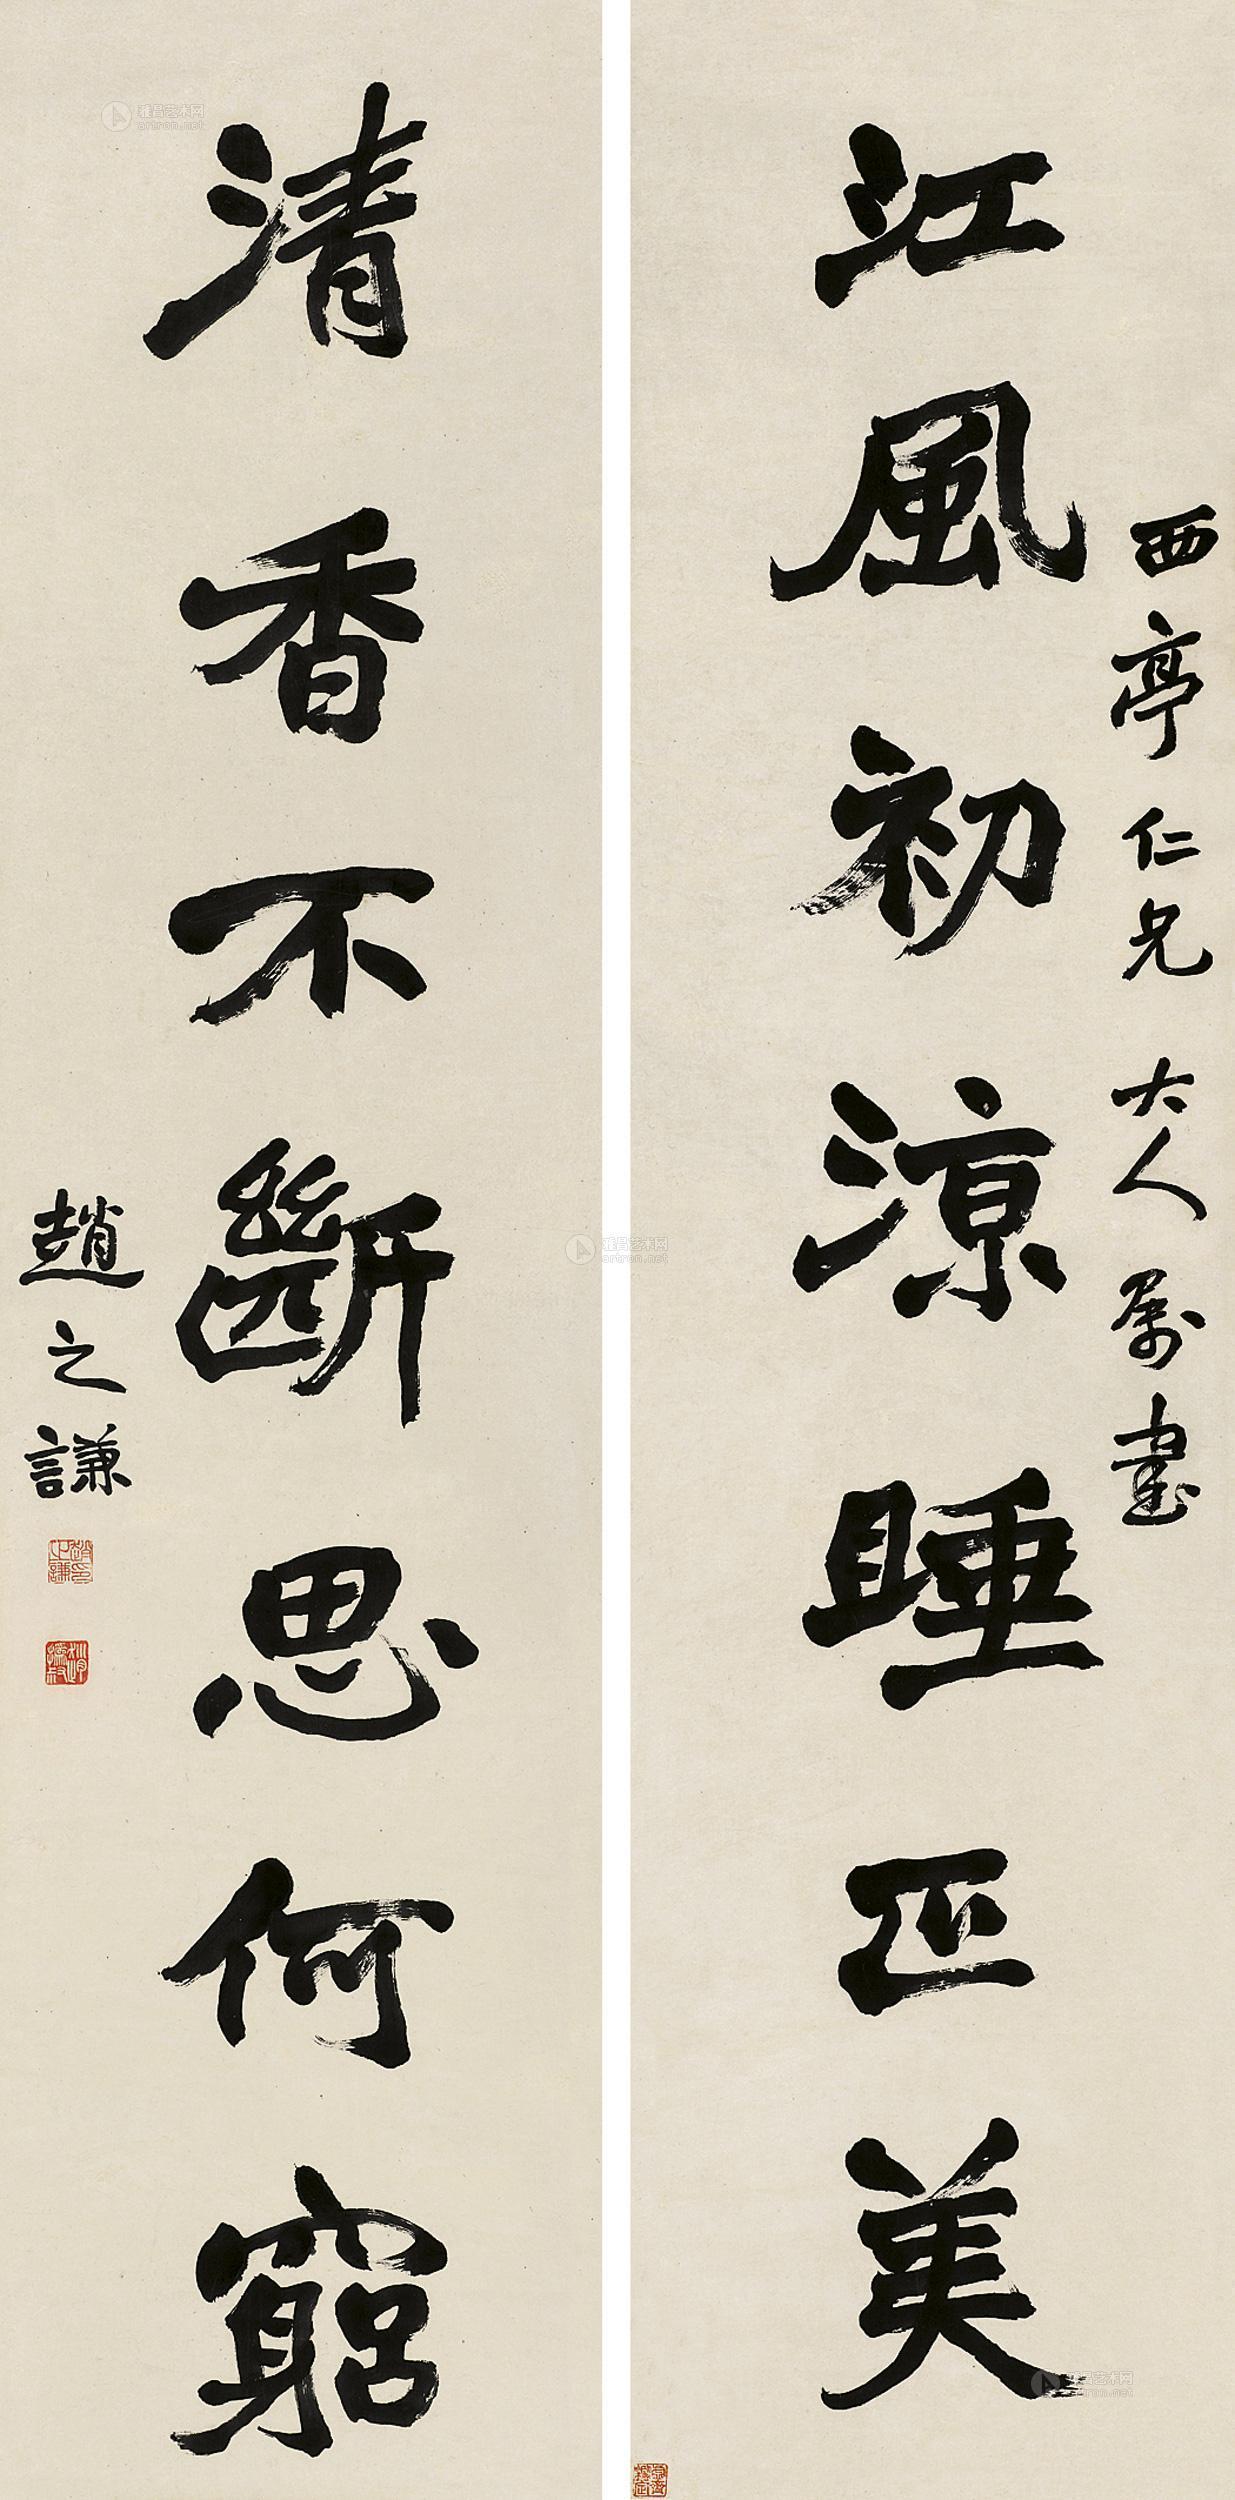 西亭仁兄大人属書
江風初涼睡正美
清香不斷思何窮
趙之謙
雅昌艺术网
artron.net
雅昌艺术网
artron.net
雅昌艺术网
artron.net